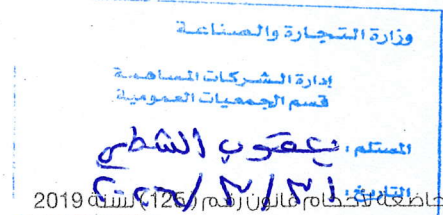 وزارة التجارة والصناعة
إدارة الشركات المساهمة
قسم الجمعيات العمومية
المستلم: يعقوب الشطي
التاريخ:
خاضعة لأحكام قانون رقم (126) لسنة 2019